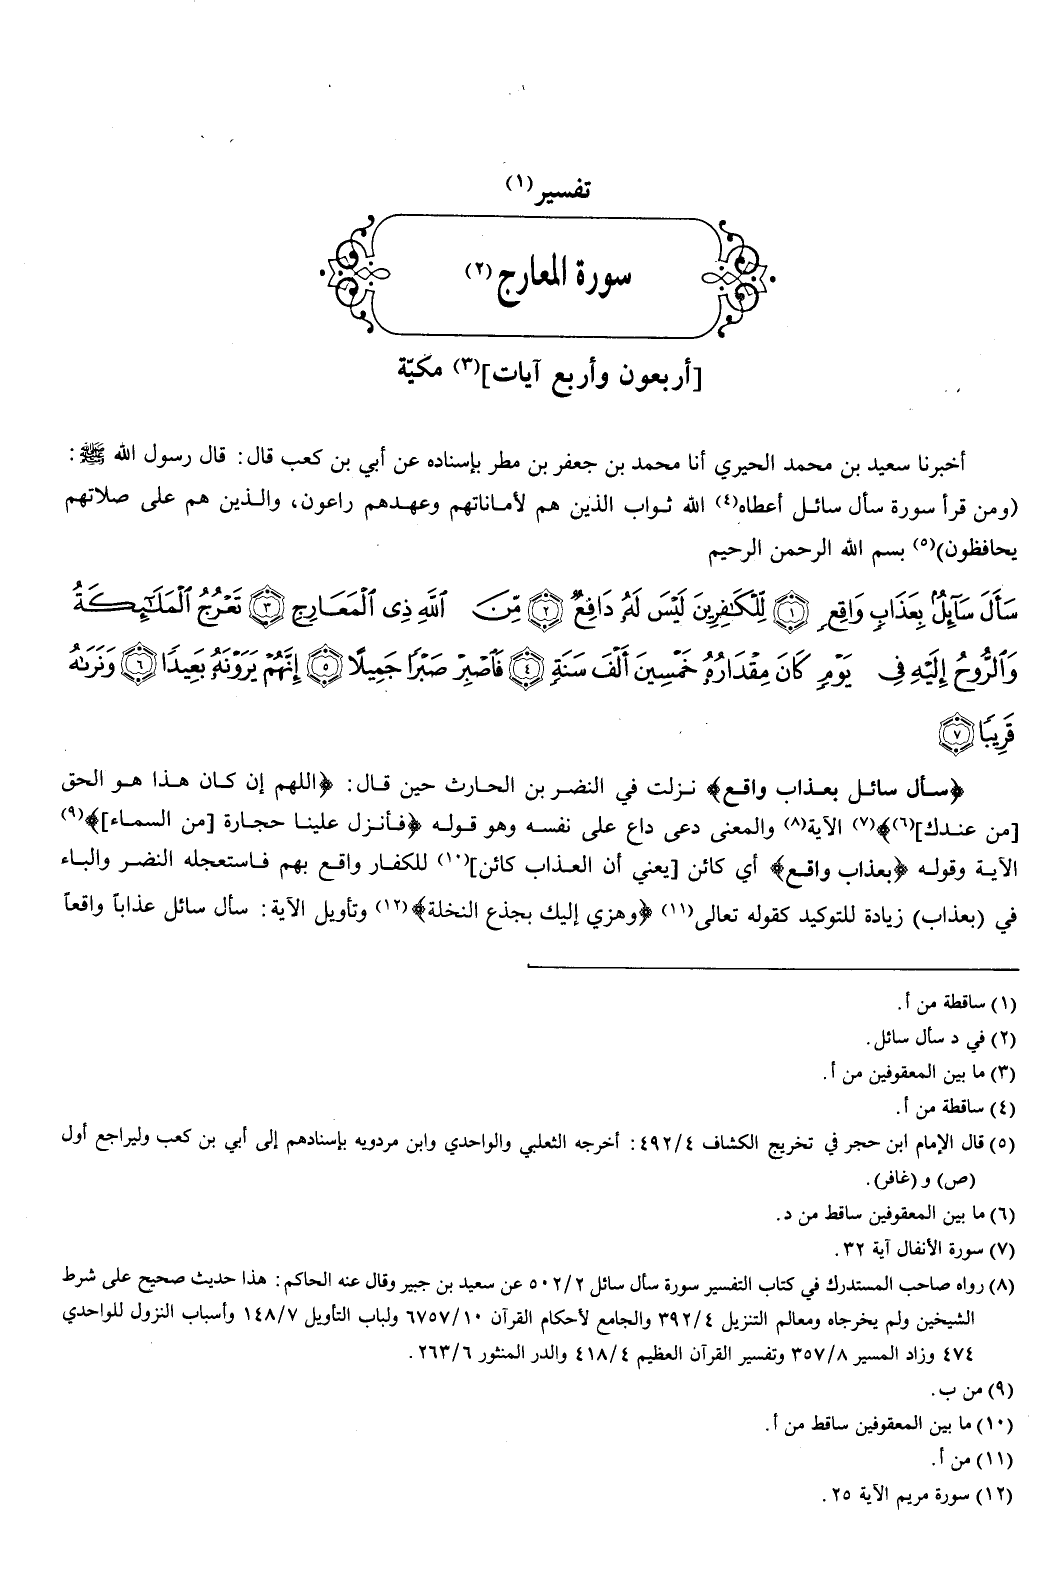 تفسير(١)
سورة المعارج(٢)
[أربعون وأربع آيات](٣) مكيّة
أخبرنا سعيد بن محمد الحيري أنا محمد بن جعفر بن مطر بإسناده عن أبي بن كعب قال: قال رسول الله ﷺ:
(ومن قرأ سورة سأل سائل أعطاه(٤) الله ثواب الذين هم لأماناتهم وعهدهم راعون، والذين هم على صلاتهم
يحافظون)(٥) بسم الله الرحمن الرحيم
سَأَلَ سَآئِلٌۢ بِعَذَابٖ وَاقِعٖ ١ لِّلۡكَٰفِرِينَ لَيۡسَ لَهُۥ دَافِعٞ ٢ مِّنَ ٱللَّهِ ذِي ٱلۡمَعَارِجِ ٣ تَعۡرُجُ ٱلۡمَلَٰٓئِكَةُ
وَٱلرُّوحُ إِلَيۡهِ فِي يَوۡمٖ كَانَ مِقۡدَارُهُۥ خَمۡسِينَ أَلۡفَ سَنَةٖ ٤ فَٱصۡبِرۡ صَبۡرٗا جَمِيلًا ٥ إِنَّهُمۡ يَرَوۡنَهُۥ بَعِيدٗا ٦ وَنَرَىٰهُ
قَرِيبٗا ٧
﴿سأل سائل بعذاب واقع﴾ نزلت في النضر بن الحارث حين قال: ﴿اللهم إن كان هذا هو الحق
[من عندك](٦)﴾(٧) الآية(٨) والمعنى دعى داع على نفسه وهو قوله ﴿فأنزل علينا حجارة [من السماء]﴾(٩)
الآية وقوله ﴿بعذاب واقع﴾ أي كائن [يعني أن العذاب كائن](١٠) للكفار واقع بهم فاستعجله النضر والباء
في (بعذاب) زيادة للتوكيد كقوله تعالى(١١) ﴿وهزي إليك بجذع النخلة﴾(١٢) وتأويل الآية: سأل سائل عذاباً واقعاً
(١) ساقطة من أ.
(٢) في د سأل سائل.
(٣) ما بين المعقوفين من أ.
(٤) ساقطة من أ.
(٥) قال الإمام ابن حجر في تخريج الكشاف ٤٩٢/٤: أخرجه الثعلبي والواحدي وابن مردويه بإسنادهم إلى أبي بن كعب وليراجع أول
(ص) و (غافر).
(٦) ما بين المعقوفين ساقط من د.
(٧) سورة الأنفال آية ٣٢.
(٨) رواه صاحب المستدرك في كتاب التفسير سورة سأل سائل ٥٠٢/٢ عن سعيد بن جبير وقال عنه الحاكم: هذا حديث صحيح على شرط
الشيخين ولم يخرجاه ومعالم التنزيل ٣٩٢/٤ والجامع لأحكام القرآن ٦٧٥٧/١٠ ولباب التأويل ١٤٨/٧ وأسباب النزول للواحدي
٤٧٤ وزاد المسير ٣٥٧/٨ وتفسير القرآن العظيم ٤١٨/٤ والدر المنثور ٢٦٣/٦.
(٩) من ب.
(١٠) ما بين المعقوفين ساقط من أ.
(١١) من أ.
(١٢) سورة مريم الآية ٢٥.